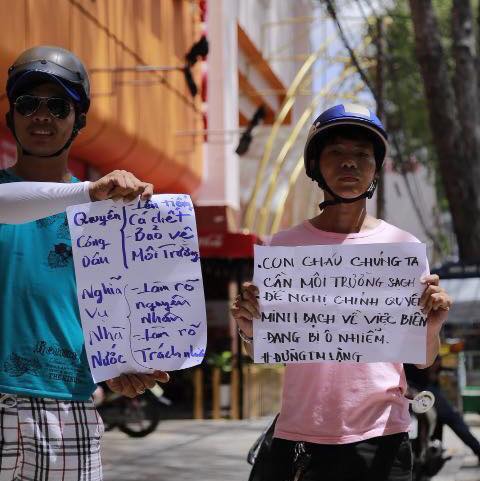 Quyền
Công
Dân
- Lên tiếng
Cá chết
- Bảo vệ
Môi Trường
Nghĩa
Vụ
Nhà
Nước
- Làm rõ
nguyên
nhân
- Làm rõ
Trách nhiệm
. CON CHÁU CHÚNG TA
CẦN MÔI TRƯỜNG SẠCH
ĐỀ NGHỊ CHÍNH QUYỀN
MINH BẠCH VỀ VIỆC BIỂN
- ĐANG BỊ Ô NHIỄM.
#ĐỪNG IM LẶNG